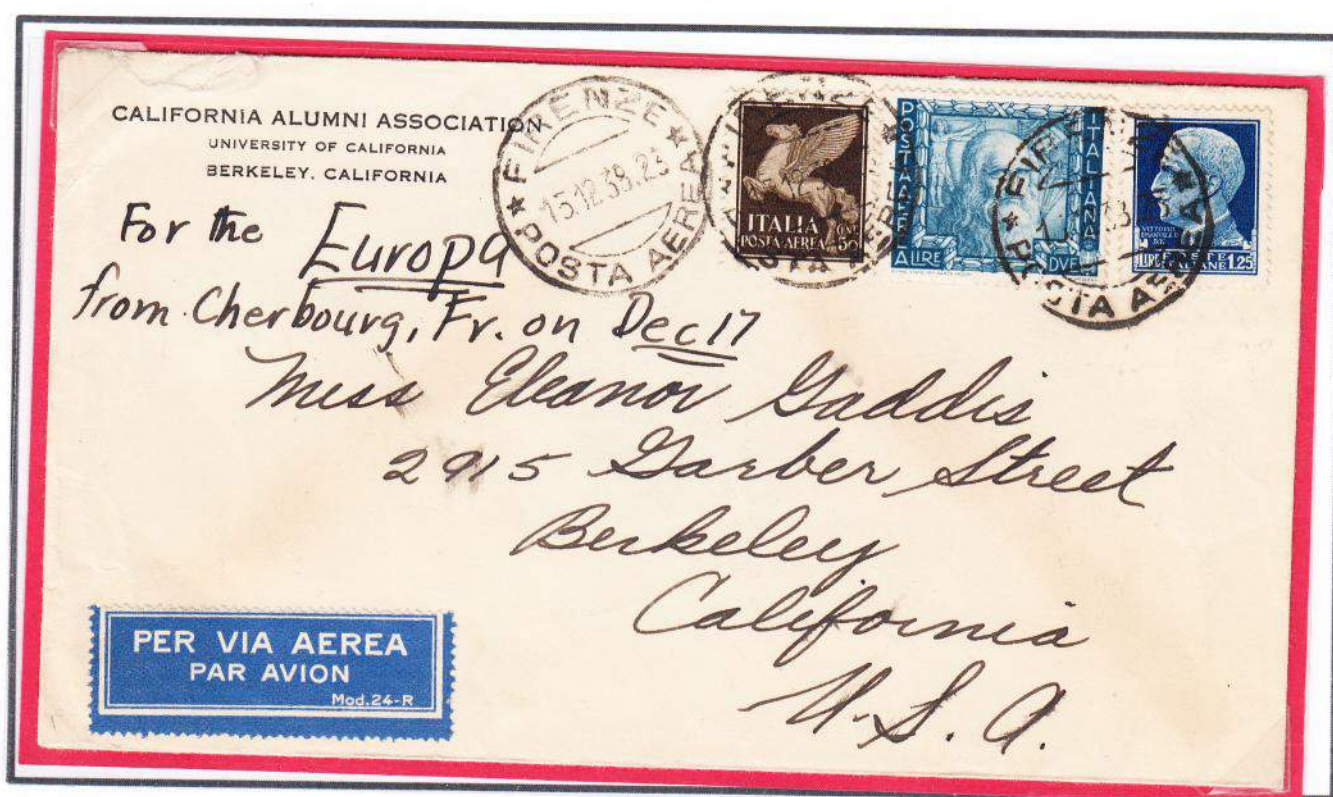 CALIFORNIA ALUMNI ASSOCIATION
UNIVERSITY OF CALIFORNIA
BERKELEY, CALIFORNIA
★ FIRENZE ★
15.12.38.23
POSTA AEREA
ITALIA
POSTA AEREA
CENT
50
POSTA AEREA
ITALIANA
LIRE
DUE
LIRE
POSTE ITALIANE
1.25
For the Europa
from Cherbourg, Fr. on Dec 17
Miss Eleanor Gaddis
2915 Garber Street
Berkeley
California
U.S.A.
PER VIA AEREA
PAR AVION
Mod.24-R